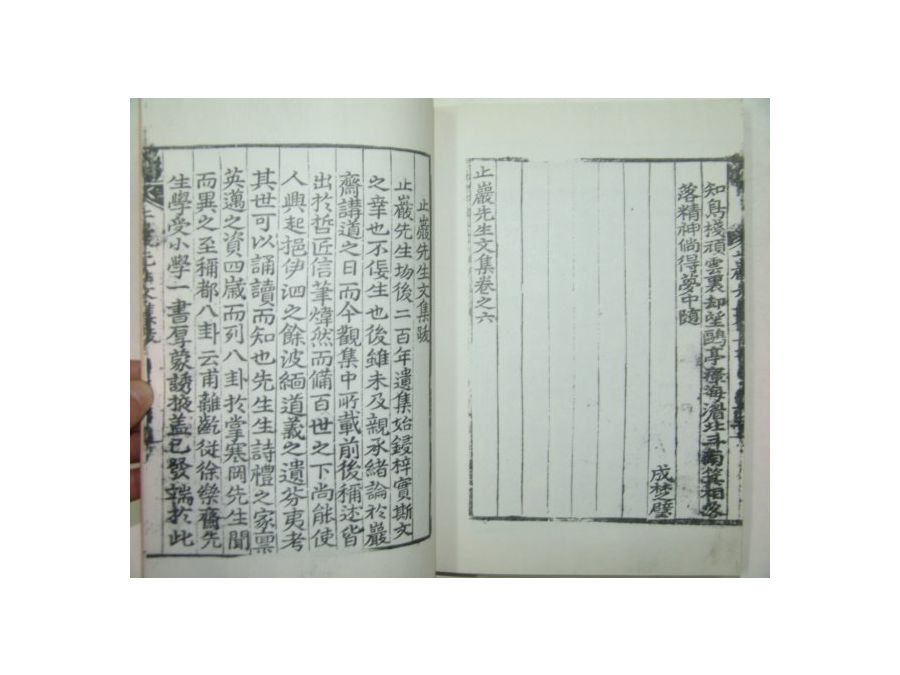 知鳥棧頑雲裏却望鷗亭瘴海潯北斗南箕相
落精神倘得夢中隨
成梦璧
止巖先生文集卷之六
止巖先生文集跋
止巖先生歿後二百年遺集始鋟梓實斯文
之幸也不佞生也後雖未及親承緒論於巖
齋講道之日而今觀集中所載前後稱述皆
出於哲匠信筆煒然而備百世之下尚能使
人興起挹伊泗之餘波緬道義之遺芬夷考
其世可以誦讀而知也先生生詩禮之家稟
英邁之資四歲而列八卦於掌寒岡先生聞
而異之至稱都八卦云甫離齔從徐樂齋先
生學受小學一書厚蒙誘掖盖已發端於此